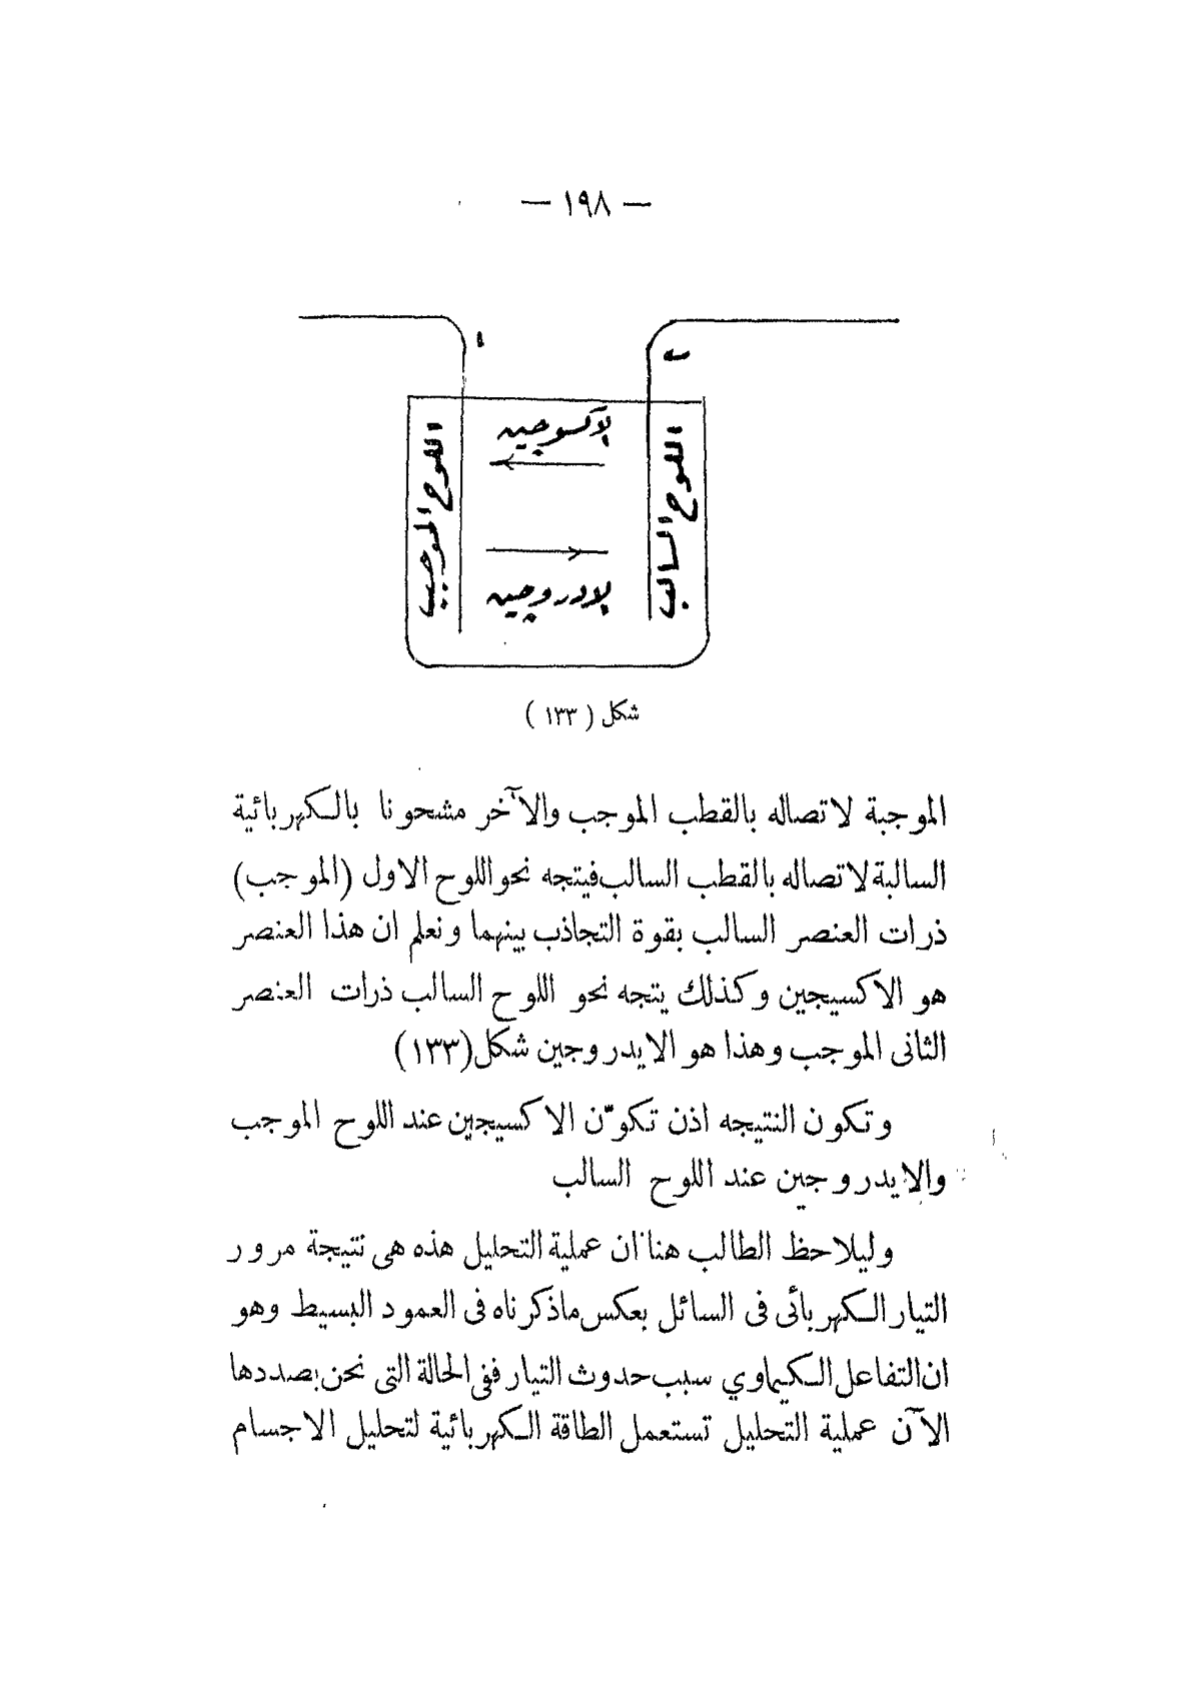 — ١٩٨ —
ا
ب
الاكسوجين
اللوح الموجب
اللوح السالب
الادروجين
شكل ( ١٣٣ )
الموجبة لاتصاله بالقطب الموجب والآخر مشحونا بالكهربائية
السالبة لاتصاله بالقطب السالب فيتجه نحو اللوح الاول (الموجب)
ذرات العنصر السالب بقوة التجاذب بينهما ونعلم ان هذا العنصر
هو الاكسيجين وكذلك يتجه نحو اللوح السالب ذرات العنصر
الثانى الموجب وهذا هو الايدروجين شكل (١٣٣)
وتكون النتيجه اذن تكوّن الاكسيجين عند اللوح الموجب
والايدروجين عند اللوح السالب
وليلاحظ الطالب هنا ان عملية التحليل هذه هى نتيجة مرور
التيار الكهربائى فى السائل بعكس ماذكرناه فى العمود البسيط وهو
ان التفاعل الكيماوي سبب حدوث التيار ففى الحالة التى نحن بصددها
الآن عملية التحليل تستعمل الطاقة الكهربائية لتحليل الاجسام